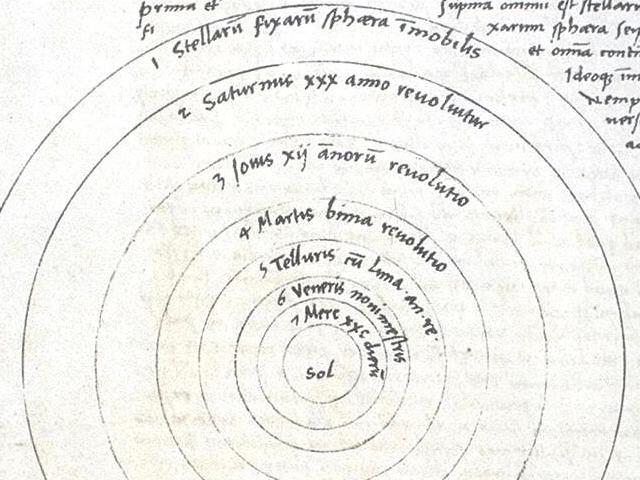 prima et
fi
supma omniū est stellarū
xarum sphæra seip
et omīa conti
Ideoqz im
Nemp
1 Stellarū fixarū sphæra īmobilis
2 Saturnus xxx anno revolvitur
3 Iovis xij ānorū revolutio
4 Martis bima revolutio
5 Telluris cū Luna. an. re.
6 Veneris nonimestris
7 Merc xxc dierū
Sol